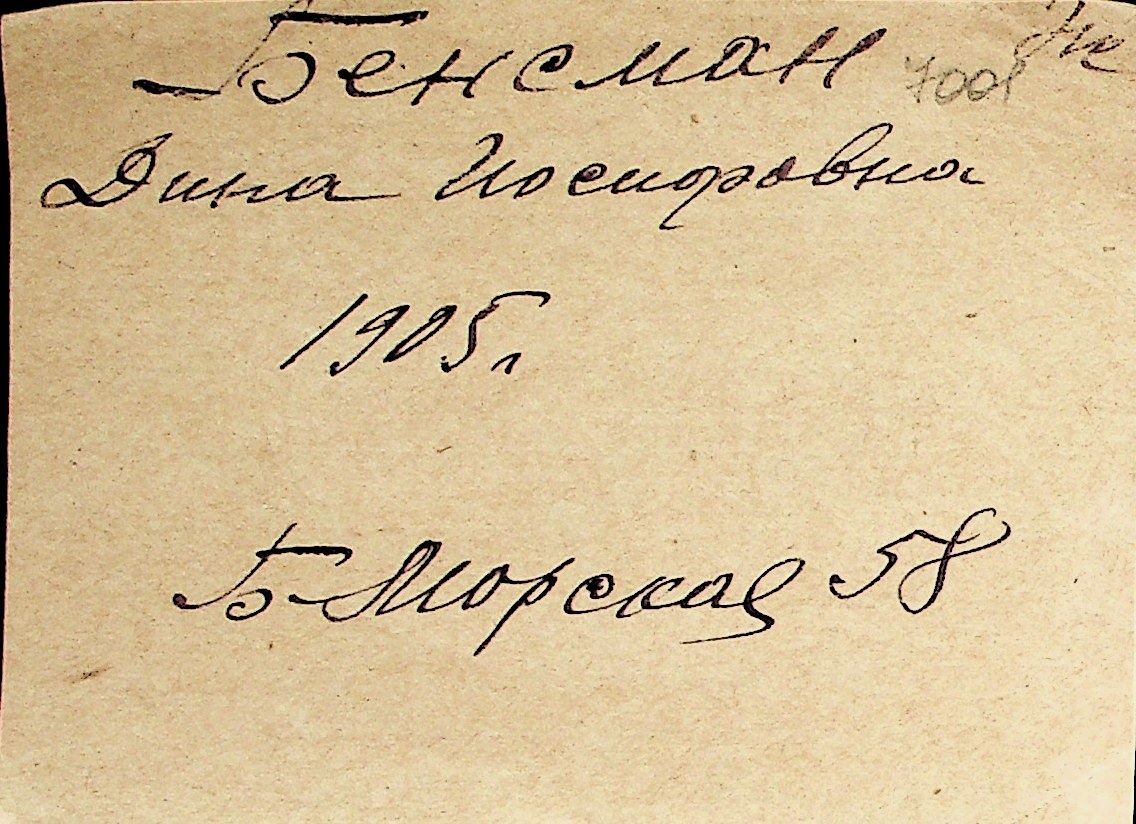 Бенсман
Дина Иосифовна
1905г
Б Морская 58